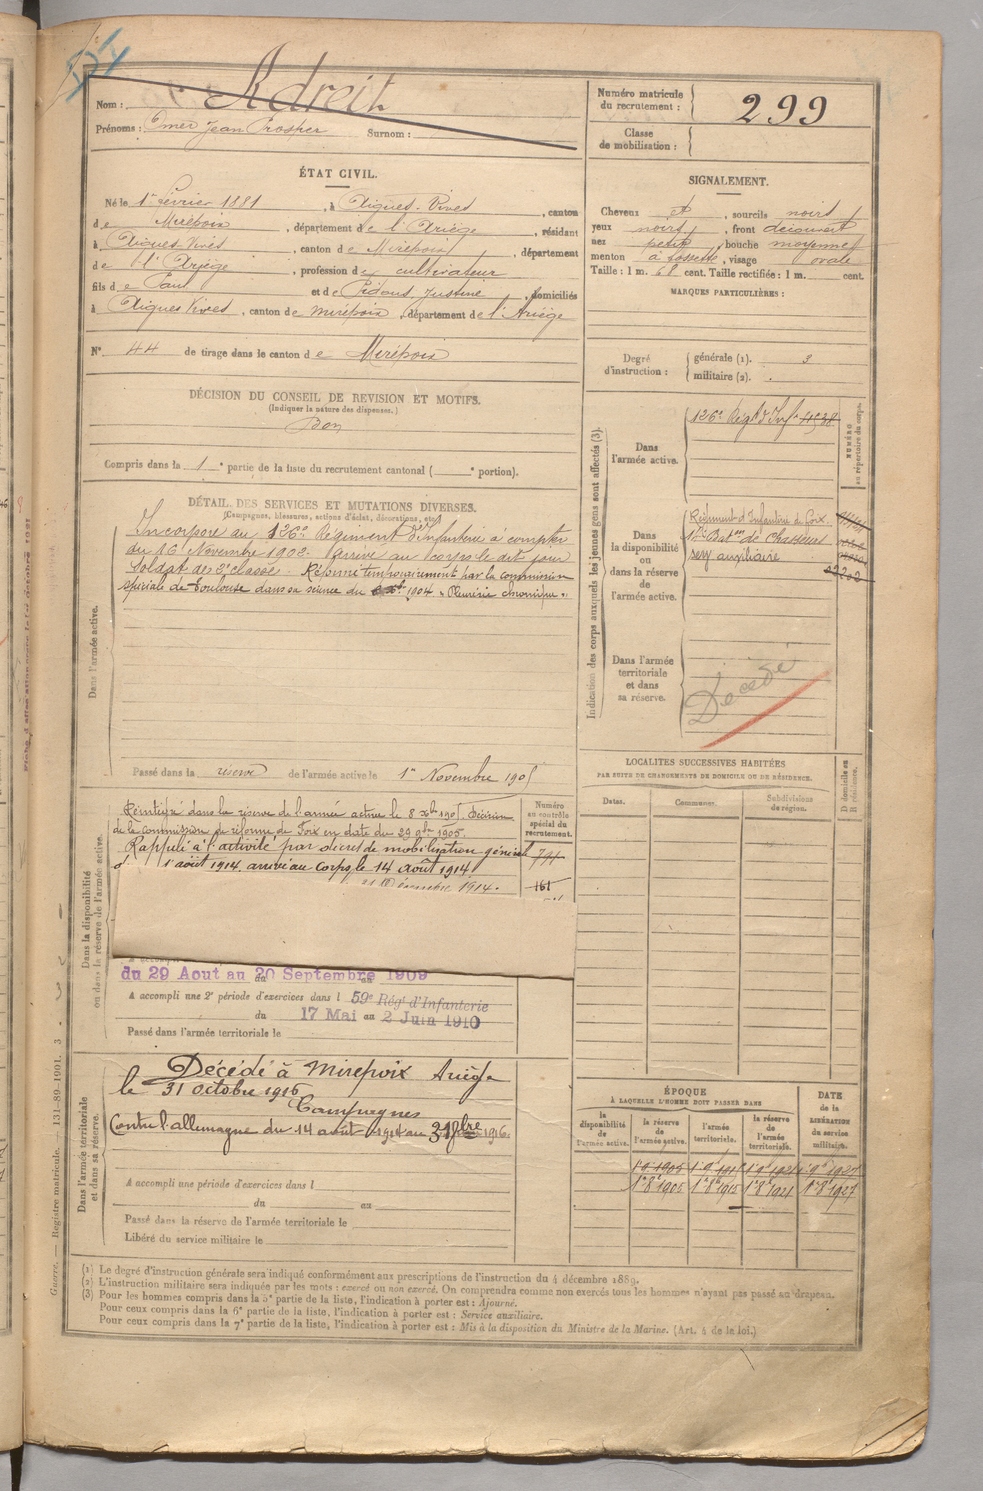 Nom : Adreit
Prénoms : Omer Jean Prosper Surnom :
Numéro matricule du recrutement : 299
Classe de mobilisation :
ÉTAT CIVIL.
Né le 1er février 1881, à Aigues-Vives, canton
de Mirepoix, département de l'Ariège, résidant
à Aigues-Vives, canton de Mirepoix, département
de l'Ariège, profession de cultivateur
fils de Paul et de Pidous Justine, domiciliés
à Aigues Vives, canton de Mirepoix, département de l'Ariège
N° 44 de tirage dans le canton de Mirepoix
SIGNALEMENT.
Cheveux et, sourcils noirs
yeux noirs, front découvert
nez petit, bouche moyenne
menton à fossette, visage ovale
Taille : 1 m. 68 cent. Taille rectifiée : 1 m. cent.
MARQUES PARTICULIÈRES :
Degré d'instruction : générale (1). 3
militaire (2).
DÉCISION DU CONSEIL DE REVISION ET MOTIFS.
(Indiquer la nature des dispenses.)
Bon
Compris dans la 1e partie de la liste du recrutement cantonal ( e portion).
DÉTAIL DES SERVICES ET MUTATIONS DIVERSES.
(Campagnes, blessures, actions d'éclat, décorations, etc.)
Dans l'armée active.
Incorporé au 126e Régiment d'infanterie à compter
du 16 Novembre 1902. Arrivé au corps le dit jour
Soldat de 2e classe. Réformé temporairement par la commission
spéciale de Toulouse dans sa séance du 1904 "Pleurésie chronique".
Passé dans la réserve de l'armée active le 1er Novembre 1905
Dans la disponibilité ou dans la réserve de l'armée active.
Réintégré dans la réserve de l'armée active le 8 Xbre 1905. Décision
de la commission de réforme de Foix en date du 29 9bre 1905.
Rappelé à l'activité par décret de mobilisation générale
d 1 août 1914. arrivé au corps le 14 août 1914
21 Décembre 1914.
Numéro au contrôle spécial du recrutement.
791
161
du 29 Aout au 20 Septembre 1909
A accompli une 2e période d'exercices dans l 59e Régt d'Infanterie
du 17 Mai au 2 Juin 1910
Passé dans l'armée territoriale le
Dans l'armée territoriale et dans sa réserve.
Décédé à Mirepoix Ariège
le 31 octobre 1916
Campagnes
Contre l'allemagne du 14 août 1914 au 31 8bre 1916.
A accompli une période d'exercices dans l
du au
Passé dans la réserve de l'armée territoriale le
Libéré du service militaire le
Indication des corps auxquels les jeunes gens sont affectés (3).
NUMÉRO au répertoire du corps.
Dans l'armée active.
126e Régt d'Inf. 11538
Dans la disponibilité ou dans la réserve de l'armée active.
Régiment d'Infanterie de Foix.
Bat.on de Chasseurs
serv auxiliaire
Dans l'armée territoriale et dans sa réserve.
Décédé
LOCALITÉS SUCCESSIVES HABITÉES
PAR SUITE DE CHANGEMENTS DE DOMICILE OU DE RÉSIDENCE.
Dates. Communes. Subdivisions de région. D domicile ou R résidence.
ÉPOQUE
À LAQUELLE L'HOMME DOIT PASSER DANS
la disponibilité de l'armée active. la réserve de l'armée active. l'armée territoriale. la réserve de l'armée territoriale.
DATE de la LIBÉRATION du service militaire.
1er 8 1905 1er 8 1915 1er 8 1921 1er 8 1927
(1) Le degré d'instruction générale sera indiqué conformément aux prescriptions de l'instruction du 4 décembre 1889.
(2) L'instruction militaire sera indiquée par les mots : exercé ou non exercé. On comprendra comme non exercés tous les hommes n'ayant pas passé au drapeau.
(3) Pour les hommes compris dans la 5e partie de la liste, l'indication à porter est : Ajourné.
Pour ceux compris dans la 6e partie de la liste, l'indication à porter est : Service auxiliaire.
Pour ceux compris dans la 7e partie de la liste, l'indication à porter est : Mis à la disposition du Ministre de la Marine. (Art. 4 de la loi.)
Guerre. — Registre matricule. — 131-89-1901.